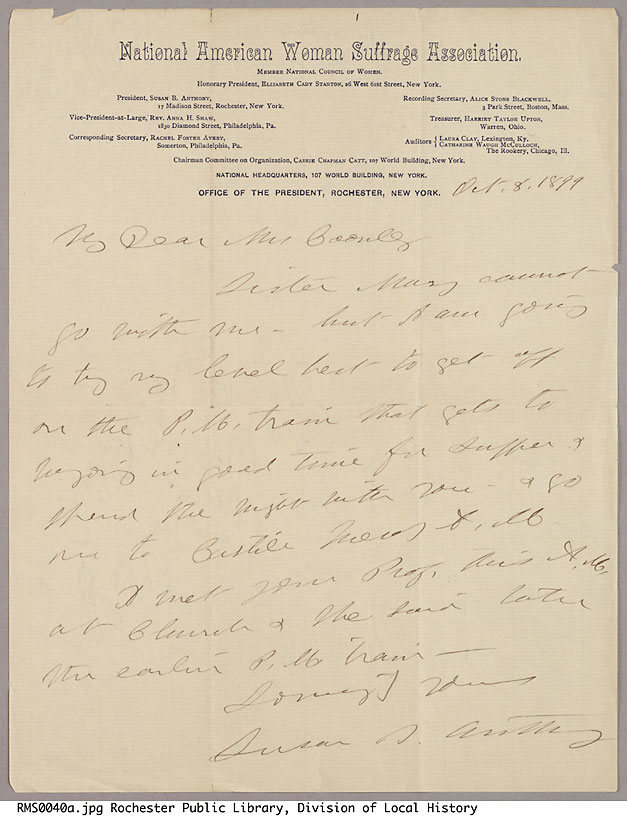 National American Woman Suffrage Association.
Member National Council of Women.
Honorary President, Elizabeth Cady Stanton, 26 West 61st Street, New York.
President, Susan B. Anthony,
17 Madison Street, Rochester, New York.
Vice-President-at-Large, Rev. Anna H. Shaw,
1830 Diamond Street, Philadelphia, Pa.
Corresponding Secretary, Rachel Foster Avery,
Somerton, Philadelphia, Pa.
Recording Secretary, Alice Stone Blackwell,
3 Park Street, Boston, Mass.
Treasurer, Harriet Taylor Upton,
Warren, Ohio.
Auditors { Laura Clay, Lexington, Ky.
Catharine Waugh McCulloch,
The Rookery, Chicago, Ill.
Chairman Committee on Organization, Carrie Chapman Catt, 107 World Building, New York.
NATIONAL HEADQUARTERS, 107 WORLD BUILDING, NEW YORK.
OFFICE OF THE PRESIDENT, ROCHESTER, NEW YORK. Oct. 8. 1899
My Dear Mrs
Sister Mary cannot
go with me - but I am going
to try my level best to get off
on the P.M. train that gets to
in good time for supper &
spend the night with you - & go
on to Castile A.M.
I met your Prof. this A.M.
at Church & he said take
the earlier P.M. train —
Lovingly yours
Susan B. Anthony
RMS0040a.jpg Rochester Public Library, Division of Local History